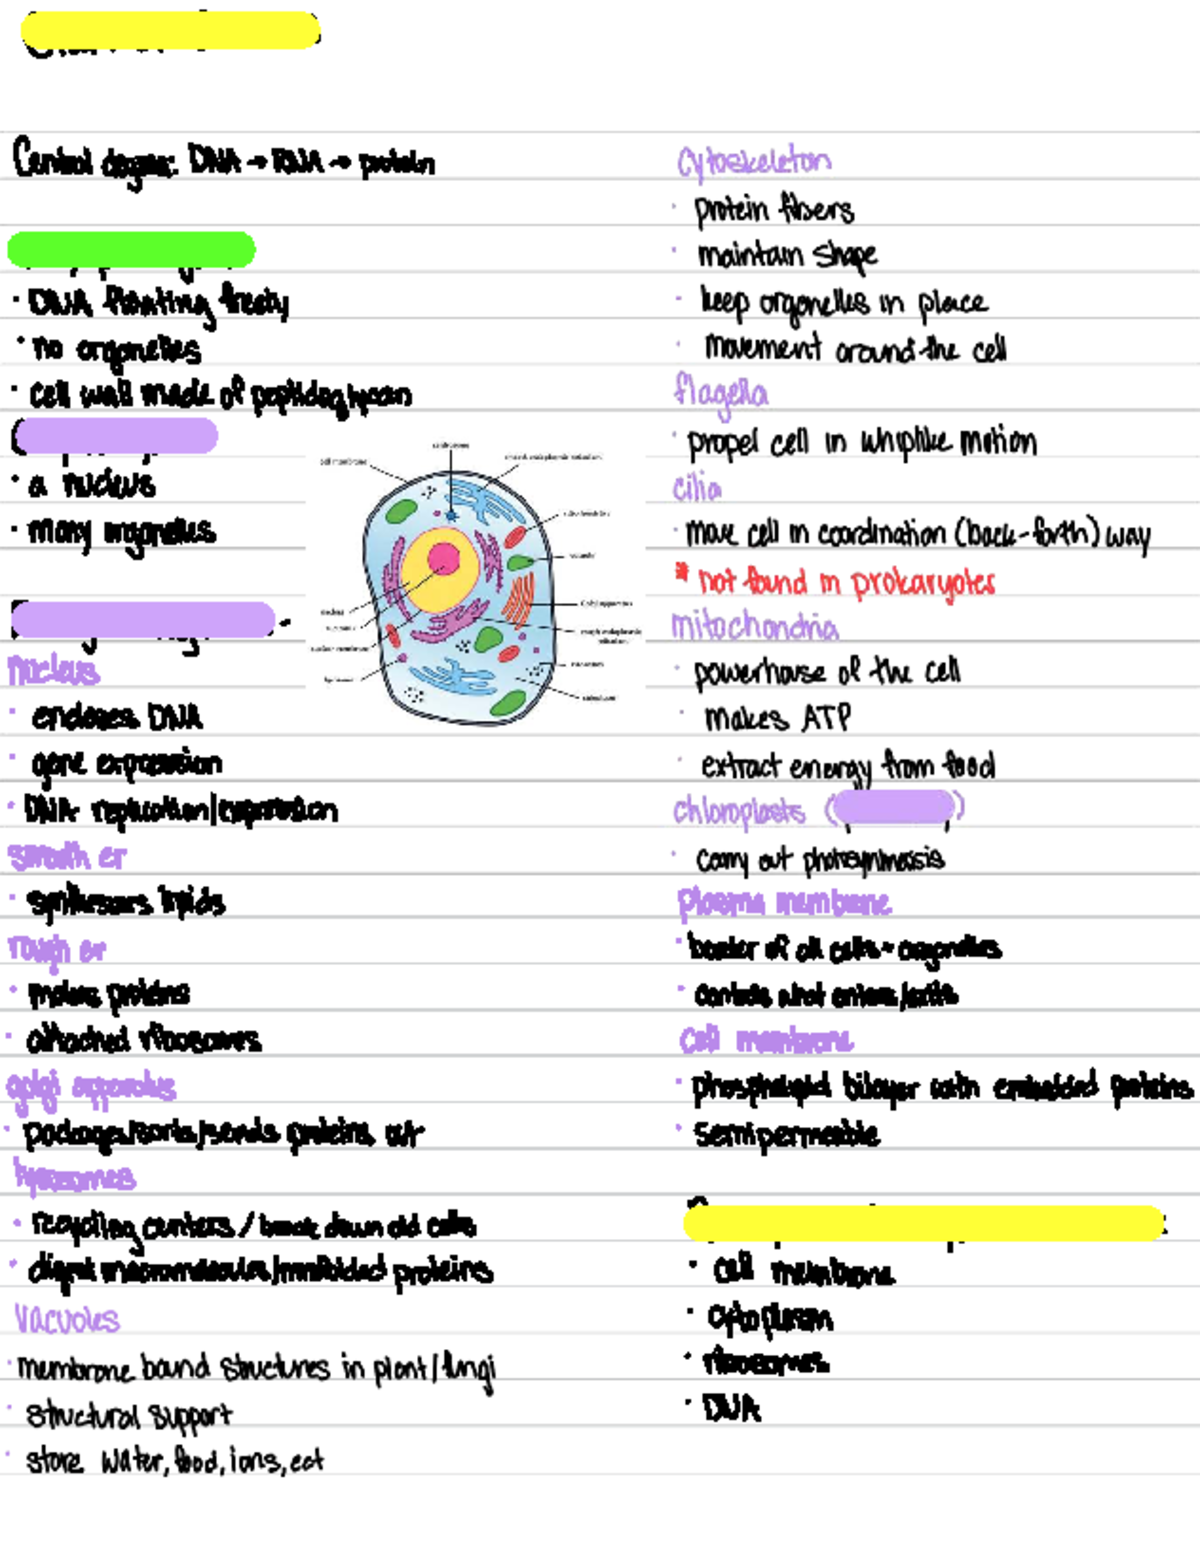 Central dogma: DNA → RNA → protein
· DNA floating freely
· no organelles
· cell wall made of peptidoglycan
· a nucleus
· many organelles
nucleus
· encloses DNA
· gene expression
· DNA replication/expression
smooth er
· synthesizes lipids
rough er
· makes proteins
· attached ribosomes
golgi apparatus
· packages/sorts/sends proteins out
lysosomes
· recycling centers / break down old cells
· digest macromolecules/misfolded proteins
Vacuoles
· membrane bound structures in plant/fungi
· structural support
· store water, food, ions, ect
cell membrane
centrosome
smooth endoplasmic reticulum
mitochondrion
vacuole
Golgi apparatus
rough endoplasmic reticulum
Cytoskeleton
· protein fibers
· maintain shape
· keep organelles in place
· movement around the cell
flagella
· propel cell in whiplike motion
cilia
· move cell in coordination (back-forth) way
* not found in prokaryotes
mitochondria
· powerhouse of the cell
· makes ATP
· extract energy from food
chloroplasts ( )
· carry out photosynthesis
plasma membrane
· border of all cells + organelles
· controls what enters/exits
Cell membrane
· phospholipid bilayer with embedded proteins
· semipermeable
· cell membrane
· cytoplasm
· ribosomes
· DNA